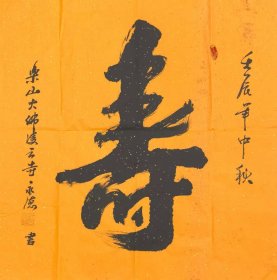 壬辰年中秋
寿
乐山大佛凌云寺永恩
书